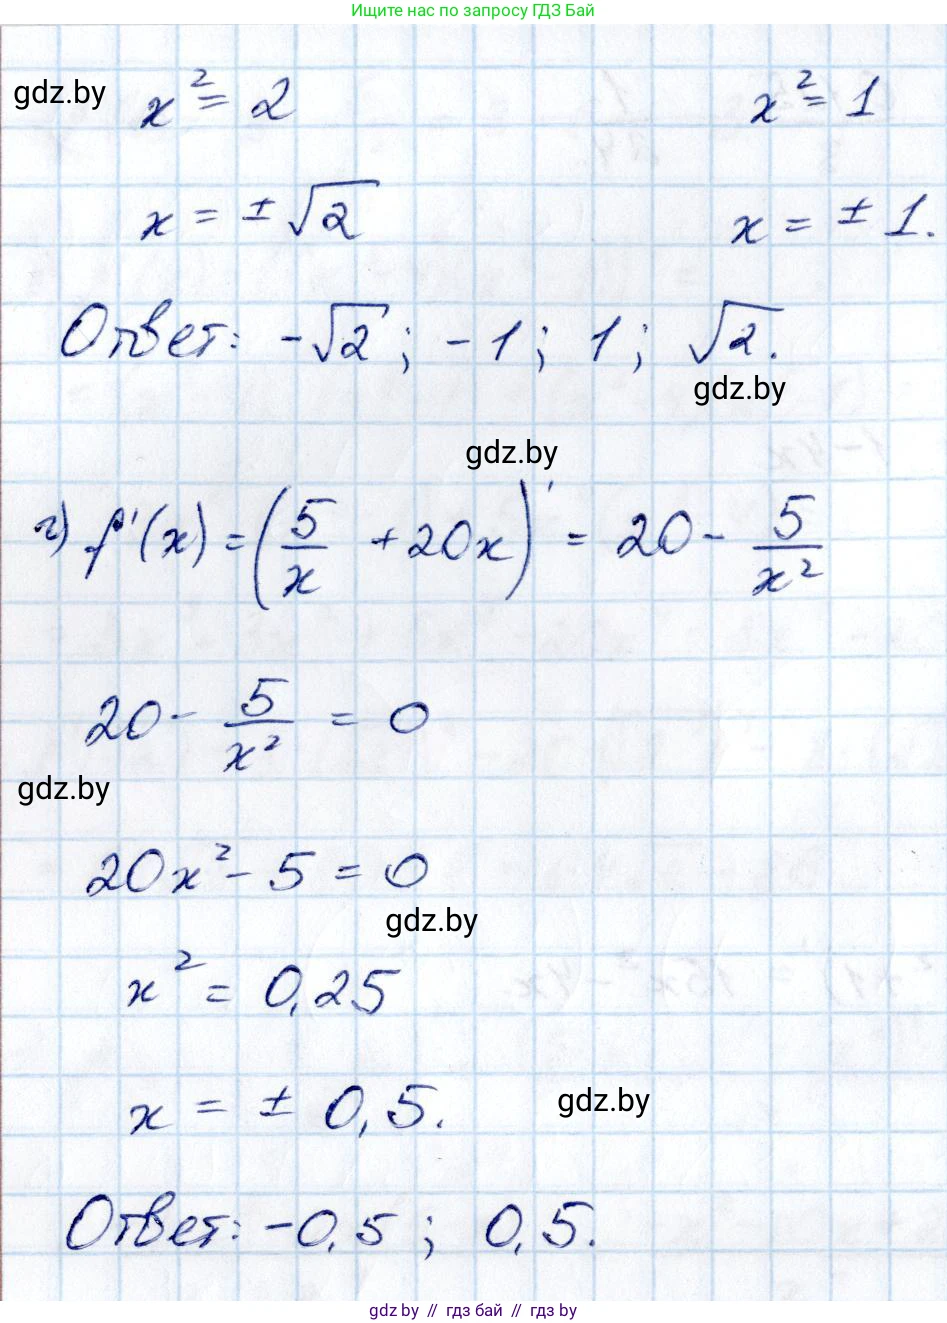 Ищите нас по запросу ГДЗ Бай
gdz.by
x² = 2 x² = 1
x = ± √2 x = ± 1.
Ответ: -√2; -1; 1; √2.
gdz.by
gdz.by
г) f'(x) = (5/x + 20x)' = 20 - 5/x²
20 - 5/x² = 0
gdz.by
20x² - 5 = 0
gdz.by
x² = 0,25
x = ± 0,5.
gdz.by
Ответ: -0,5; 0,5.
gdz.by // гдз бай // гдз by